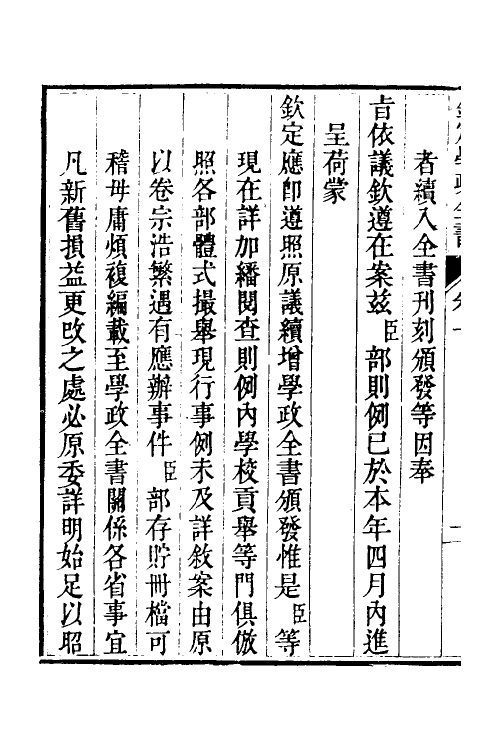 者續入全書刊刻頒發等因奉
旨依議欽遵在案茲臣部則例已於本年四月內進
呈荷蒙
欽定應卽遵照原議續增學政全書頒發惟是臣等
現在詳加繙閱查則例內學校貢舉等門俱倣
照各部體式撮舉現行事例未及詳敘案由原
以卷宗浩繁遇有應辦事件臣部存貯冊檔可
稽毋庸煩複編載至學政全書關係各省事宜
凡新舊損益更改之處必原委詳明始足以昭